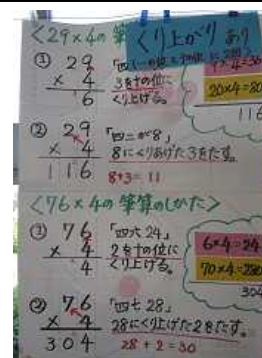 <29×4の筆
くり上がり あり
① 29
× 4
6
3を十の位に
くり上げる。
9×4=36
20×4=80
116
② 29
× 4
116
「四二が8」
8にくりあげた3をたす。
8+3=11
<76×4の筆算のしかた>
① 76
× 4
4
「四六24」
2を十の位に
くり上げる。
6×4=24
70×4=280
304
② 76
× 4
304
「四七28」
28にくり上げた2をたす。
28+2=30